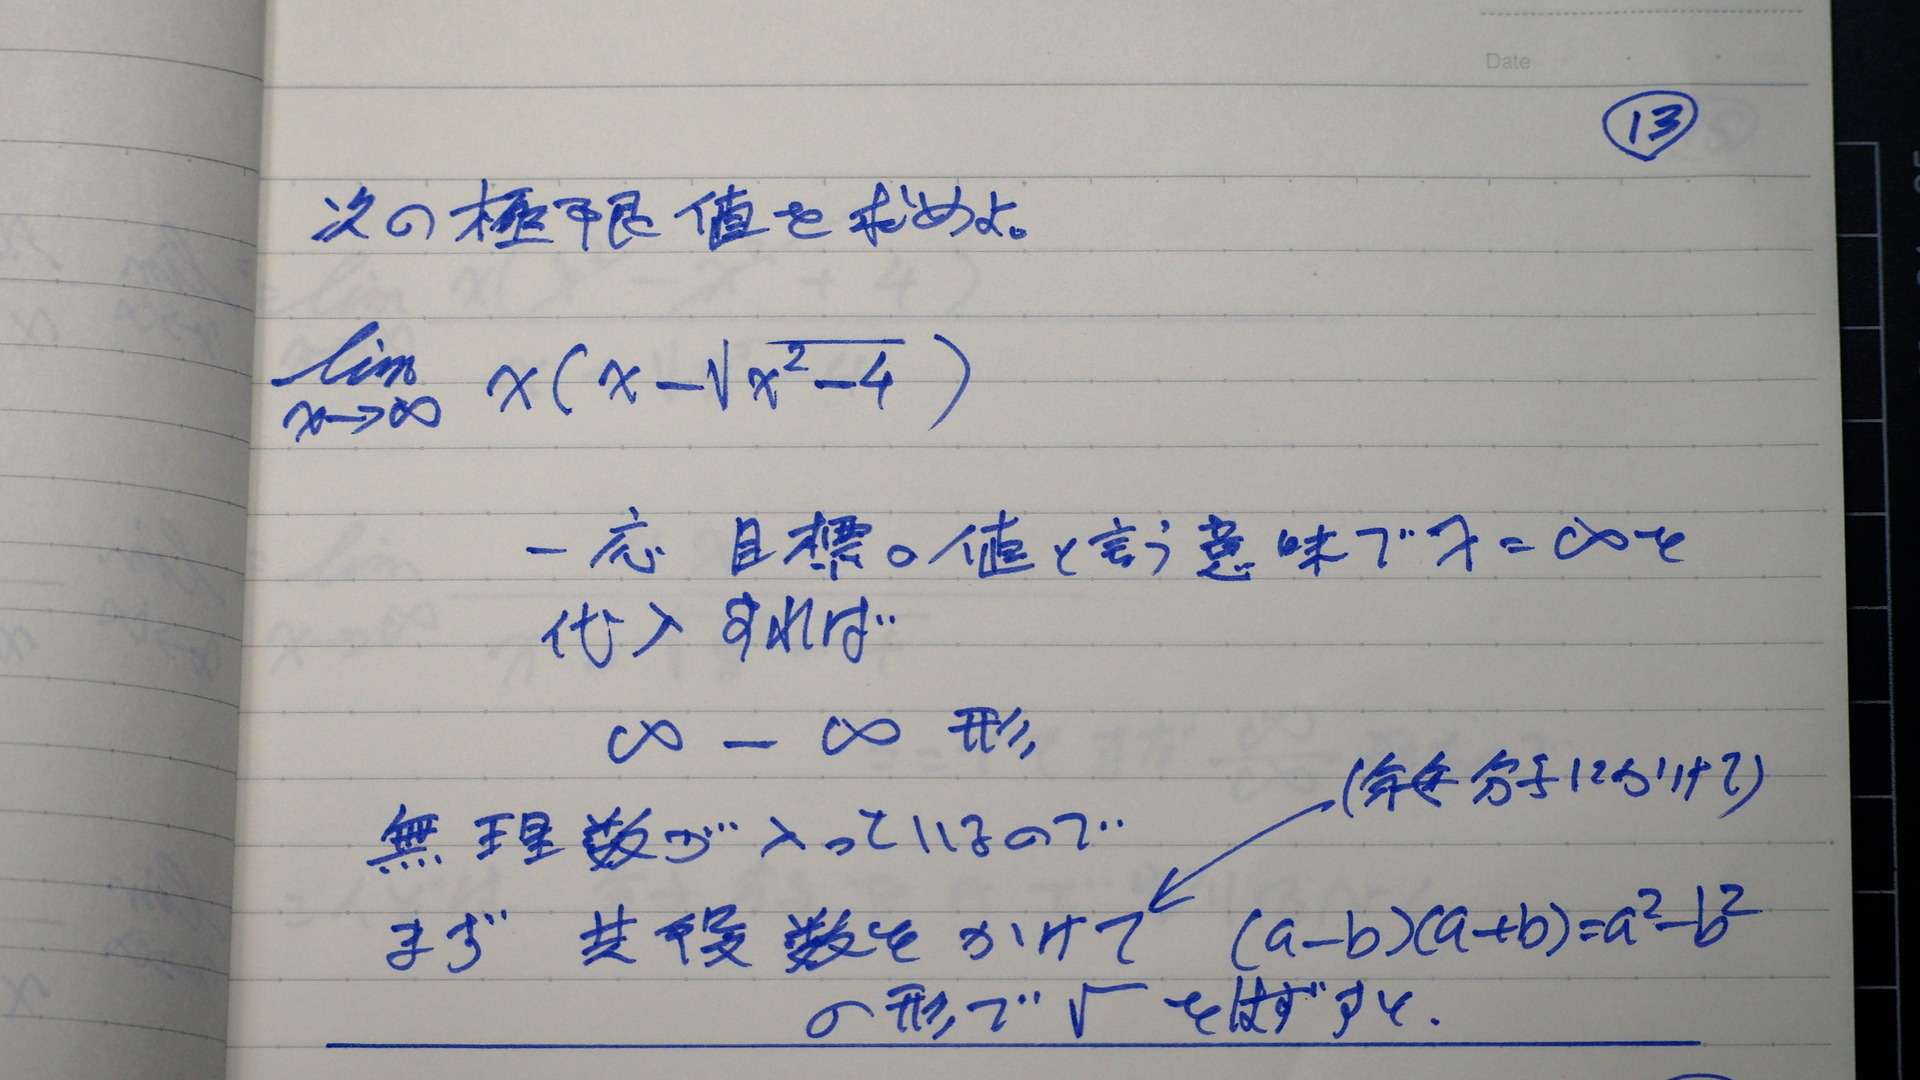 Date
13
次の極限値を求めよ。
lim x→∞ x(x-√x²-4)
一応 目標の値と言う意味でx=∞を
代入すれば
∞ - ∞ 形
(分母分子にかけて)
無理数が入っているので
まず 共役数をかけて (a-b)(a+b)=a²-b²
の形で√をはずすと.